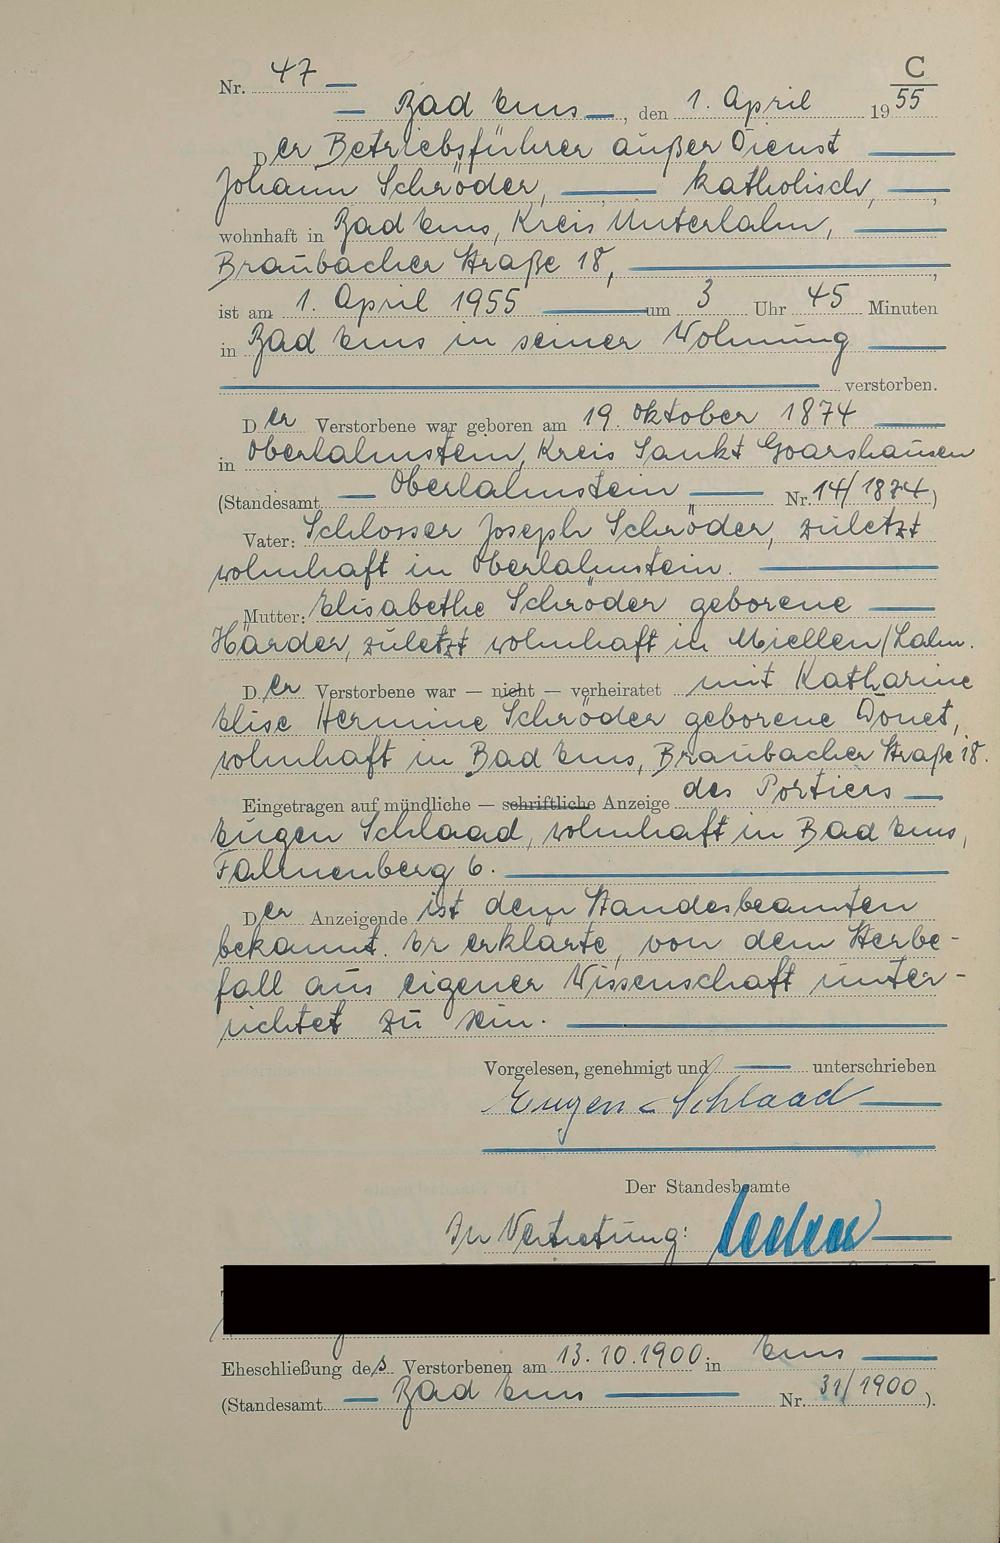 C
Nr. 47
Bad Ems, den 1. April 1955
Der Betriebsführer außer Dienst
Johann Schröder, katholisch,
wohnhaft in Bad Ems, Kreis Unterlahn,
Braubacher Straße 18,
ist am 1. April 1955 um 3 Uhr 45 Minuten
in Bad Ems in seiner Wohnung
verstorben.
Der Verstorbene war geboren am 19. Oktober 1874
in Oberlahnstein, Kreis Sankt Goarshausen
(Standesamt Oberlahnstein Nr. 14/1874)
Vater: Schlosser Joseph Schröder, zuletzt
wohnhaft in Oberlahnstein.
Mutter: Elisabethe Schröder geborene
Harder, zuletzt wohnhaft in Miellen/Lahn.
Der Verstorbene war — nicht — verheiratet mit Katharine
Elise Hermine Schröder geborene Donet,
wohnhaft in Bad Ems, Braubacher Straße 18.
Eingetragen auf mündliche — schriftliche Anzeige des Portiers
Eugen Schlaad, wohnhaft in Bad Ems,
Fahnenberg 6.
Der Anzeigende ist dem Standesbeamten
bekannt. Er erklärte, von dem Sterbe-
fall aus eigener Wissenschaft unter-
richtet zu sein.
Vorgelesen, genehmigt und unterschrieben
Eugen Schlaad
Der Standesbeamte
In Vertretung:
Eheschließung des Verstorbenen am 13.10.1900 in Ems
(Standesamt Bad Ems Nr. 31/1900).